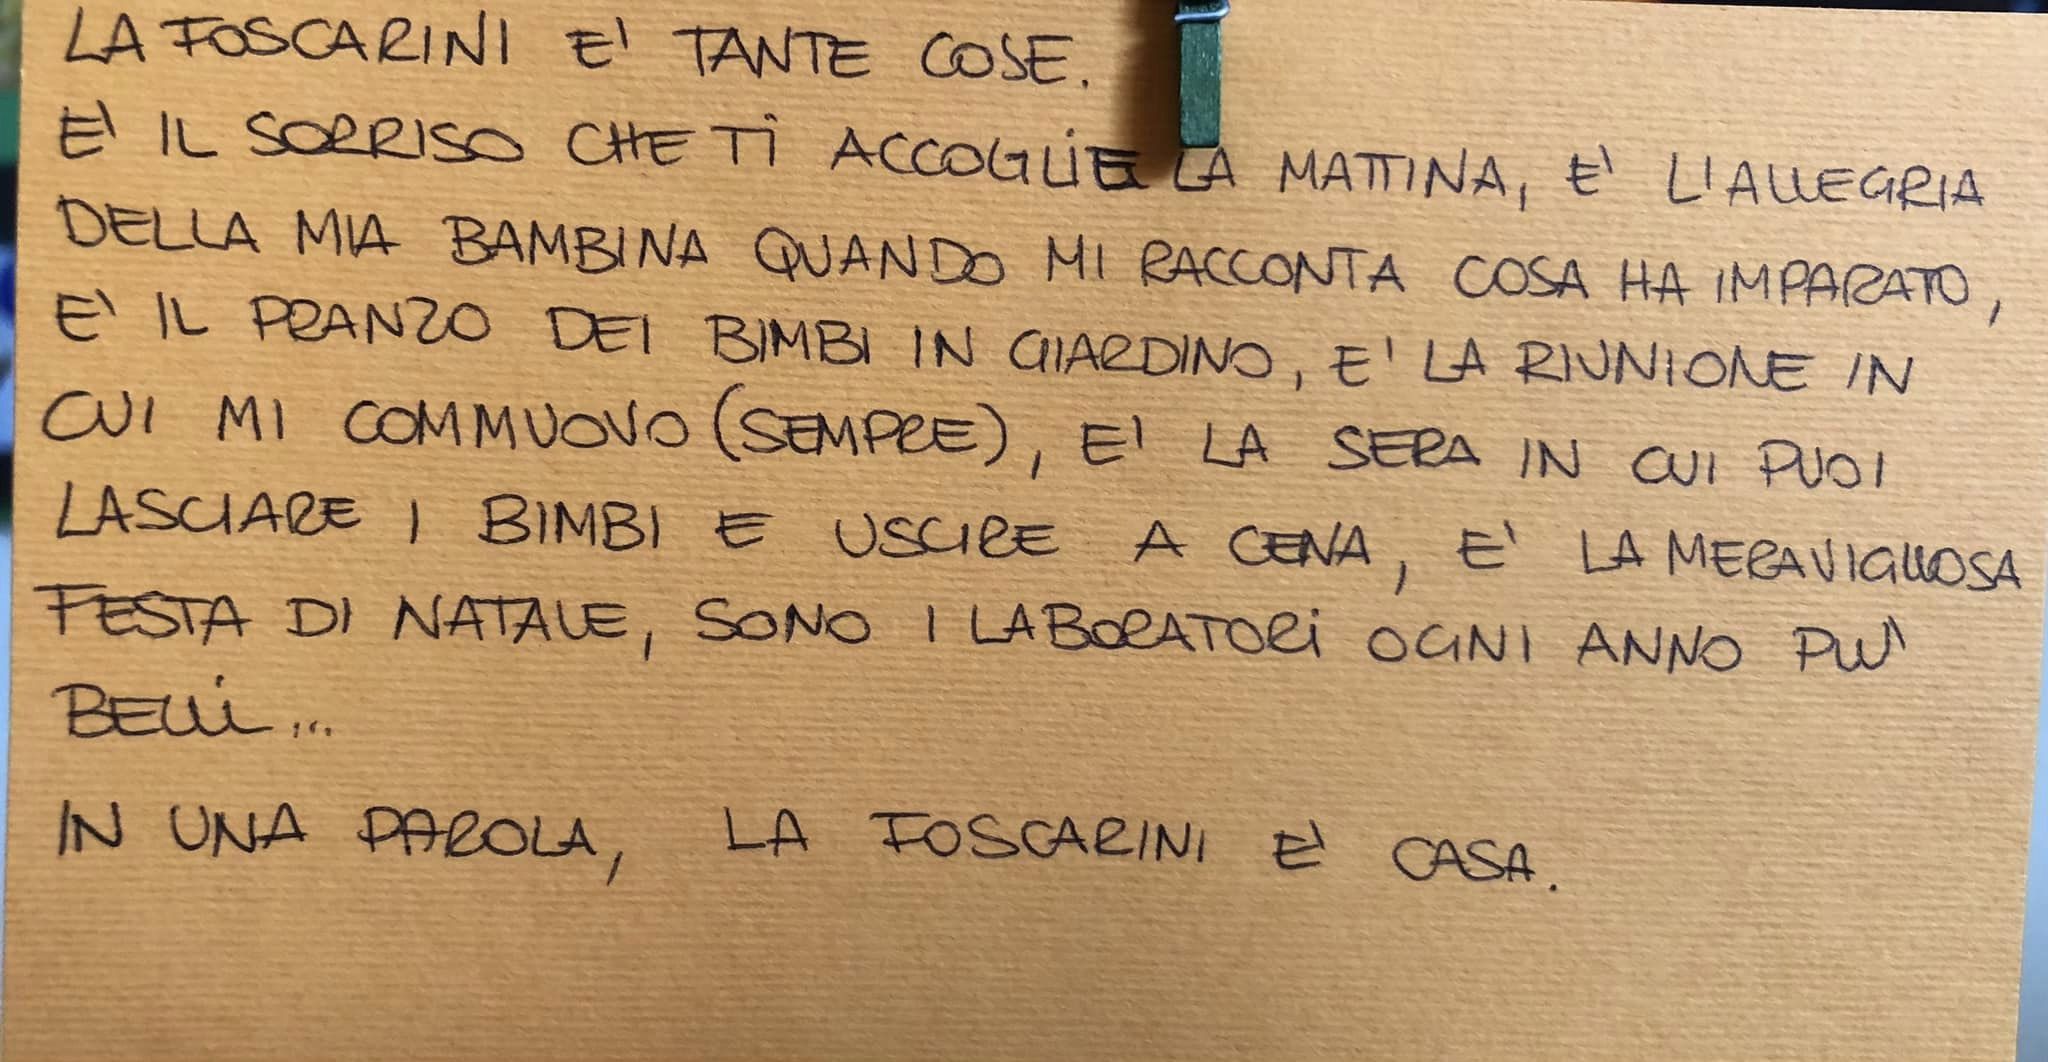 LA FOSCARINI E' TANTE COSE.
E' IL SORRISO CHE TI ACCOGLIE LA MATTINA, E' L'ALLEGRIA
DELLA MIA BAMBINA QUANDO MI RACCONTA COSA HA IMPARATO,
E' IL PRANZO DEI BIMBI IN GIARDINO, E' LA RIUNIONE IN
CUI MI COMMUOVO (SEMPRE), E' LA SERA IN CUI PUOI
LASCIARE I BIMBI E USCIRE A CENA, E' LA MERAVIGLIOSA
FESTA DI NATALE, SONO I LABORATORI OGNI ANNO PIU'
BELLI...
IN UNA PAROLA, LA FOSCARINI E' CASA.